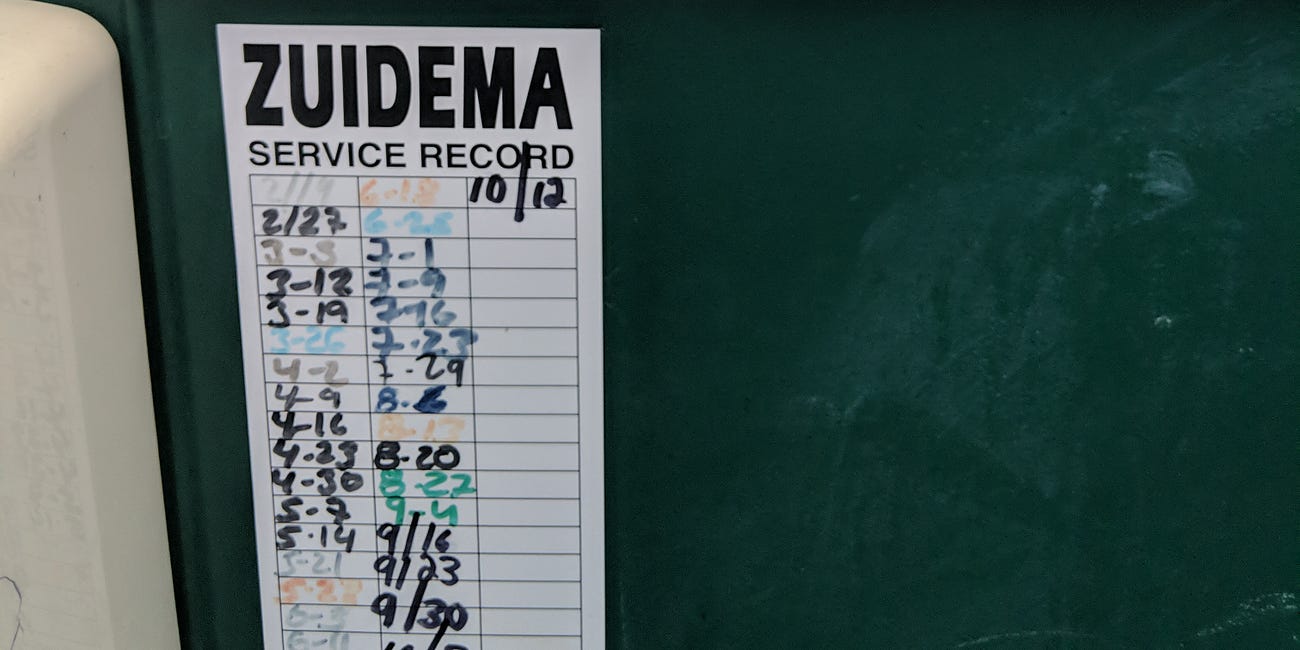 ZUIDEMA
SERVICE RECORD
6-18 10/12
2/27 6-26
3-3 7-1
3-12 7-9
3-19 7-16
3-26 7-23
4-2 7-29
4-9 8-6
4-16 8-13
4-23 8-20
4-30 8-27
5-7 9-4
5-14 9/16
5-21 9/23
9/30
6-3
6-11